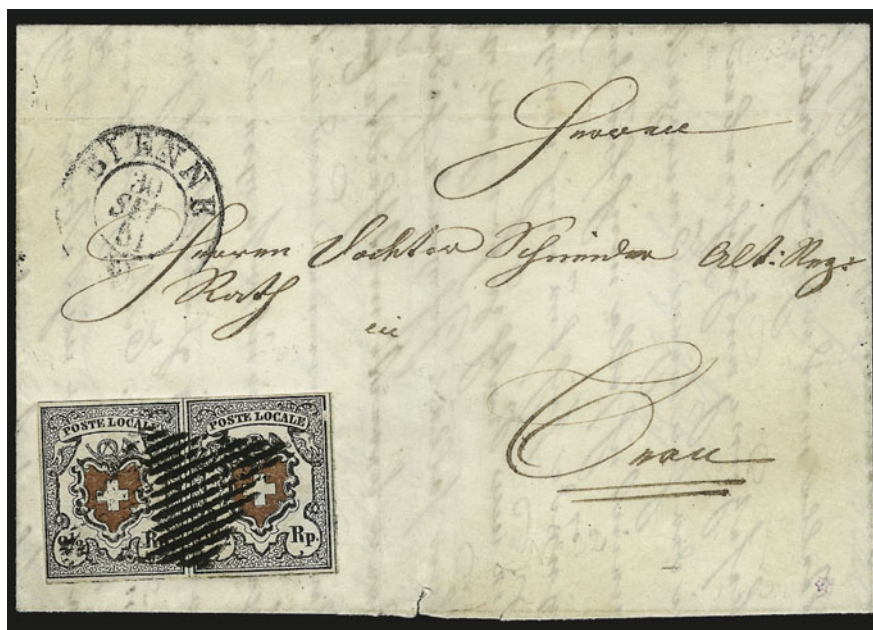 BIENNE
30
SEPT
51
Herren
Herren Doktor Schneider Alt: Reg:
Rath
in
POSTE LOCALE POSTE LOCALE
2½ Rp. Rp.